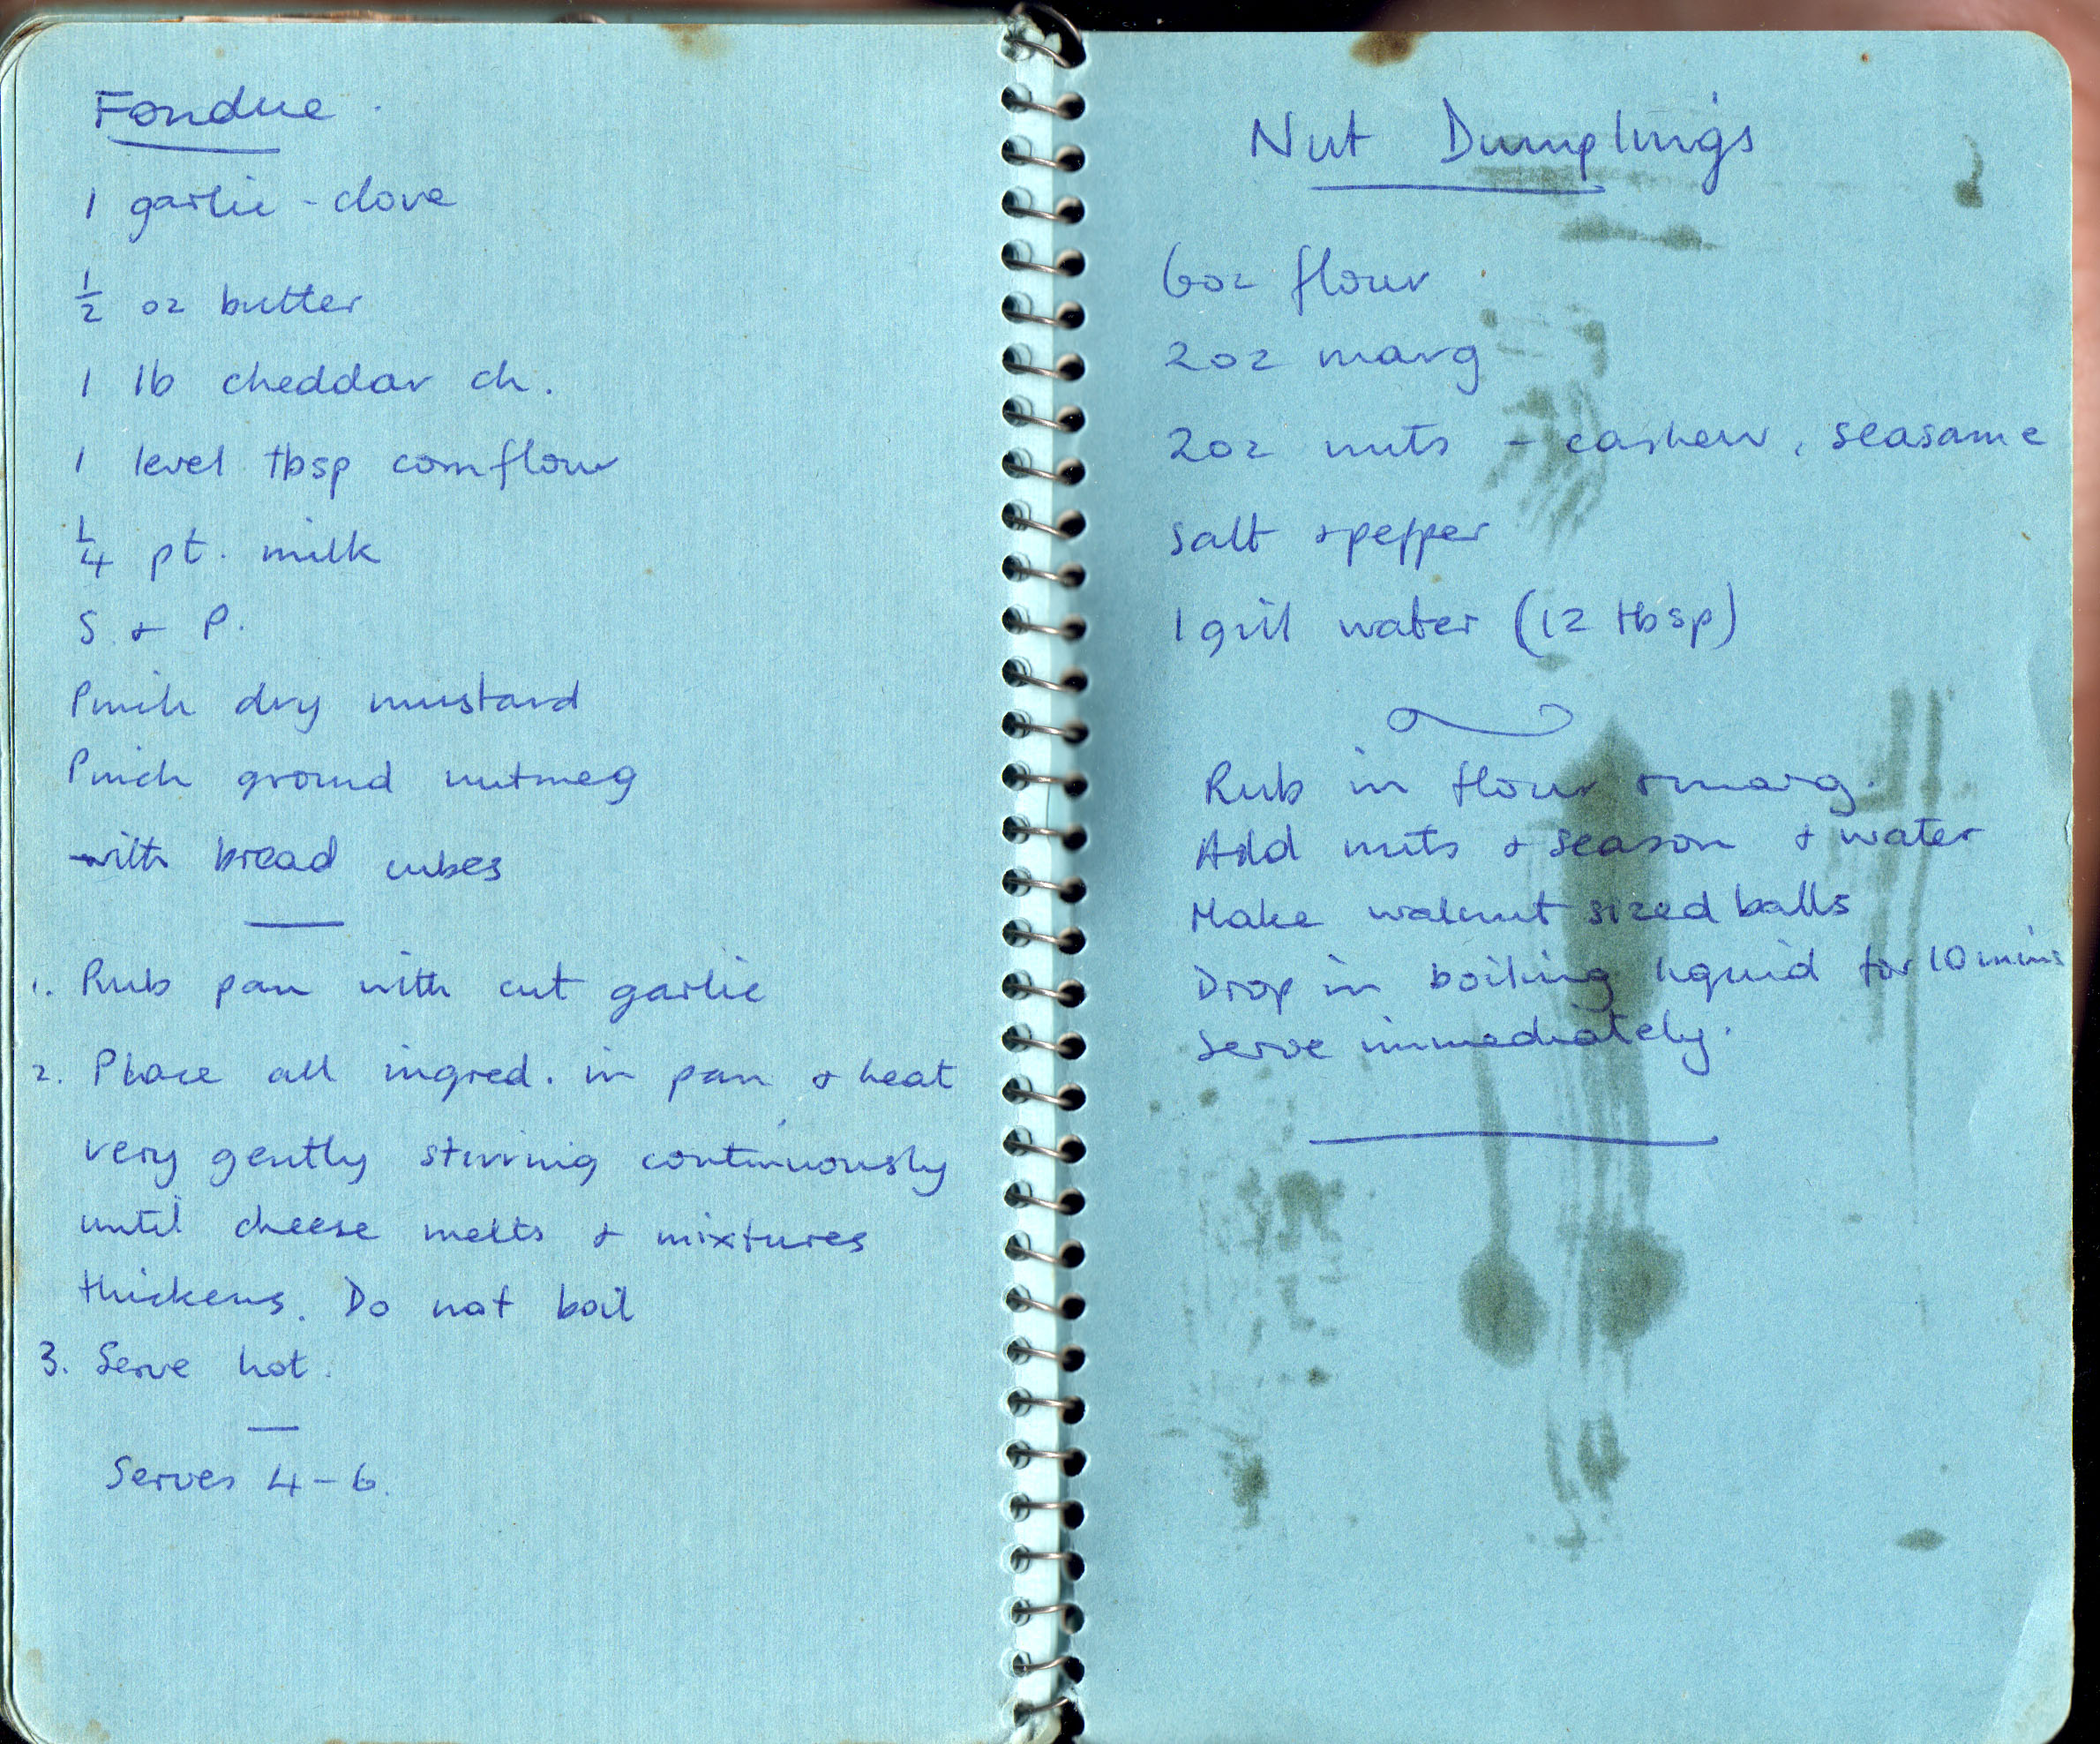 Fondue.
1 garlic - clove
½ oz butter
1 lb cheddar ch.
1 level tbsp cornflour
¼ pt. milk
S. & P.
Pinch dry mustard
Pinch ground nutmeg
with bread cubes
1. Rub pan with cut garlic
2. Place all ingred. in pan & heat
very gently stirring continuously
until cheese melts & mixtures
thickens. Do not boil
3. Serve hot.
Serves 4-6.
Nut Dumplings
6oz flour
2oz marg
2oz nuts - cashew, seasame
salt & pepper
1 gril water (12 tbsp)
Rub in flour & marg.
Add nuts & season & water
Make walnut sized balls
Drop in boiling liquid for 10 mins
Serve immediately.